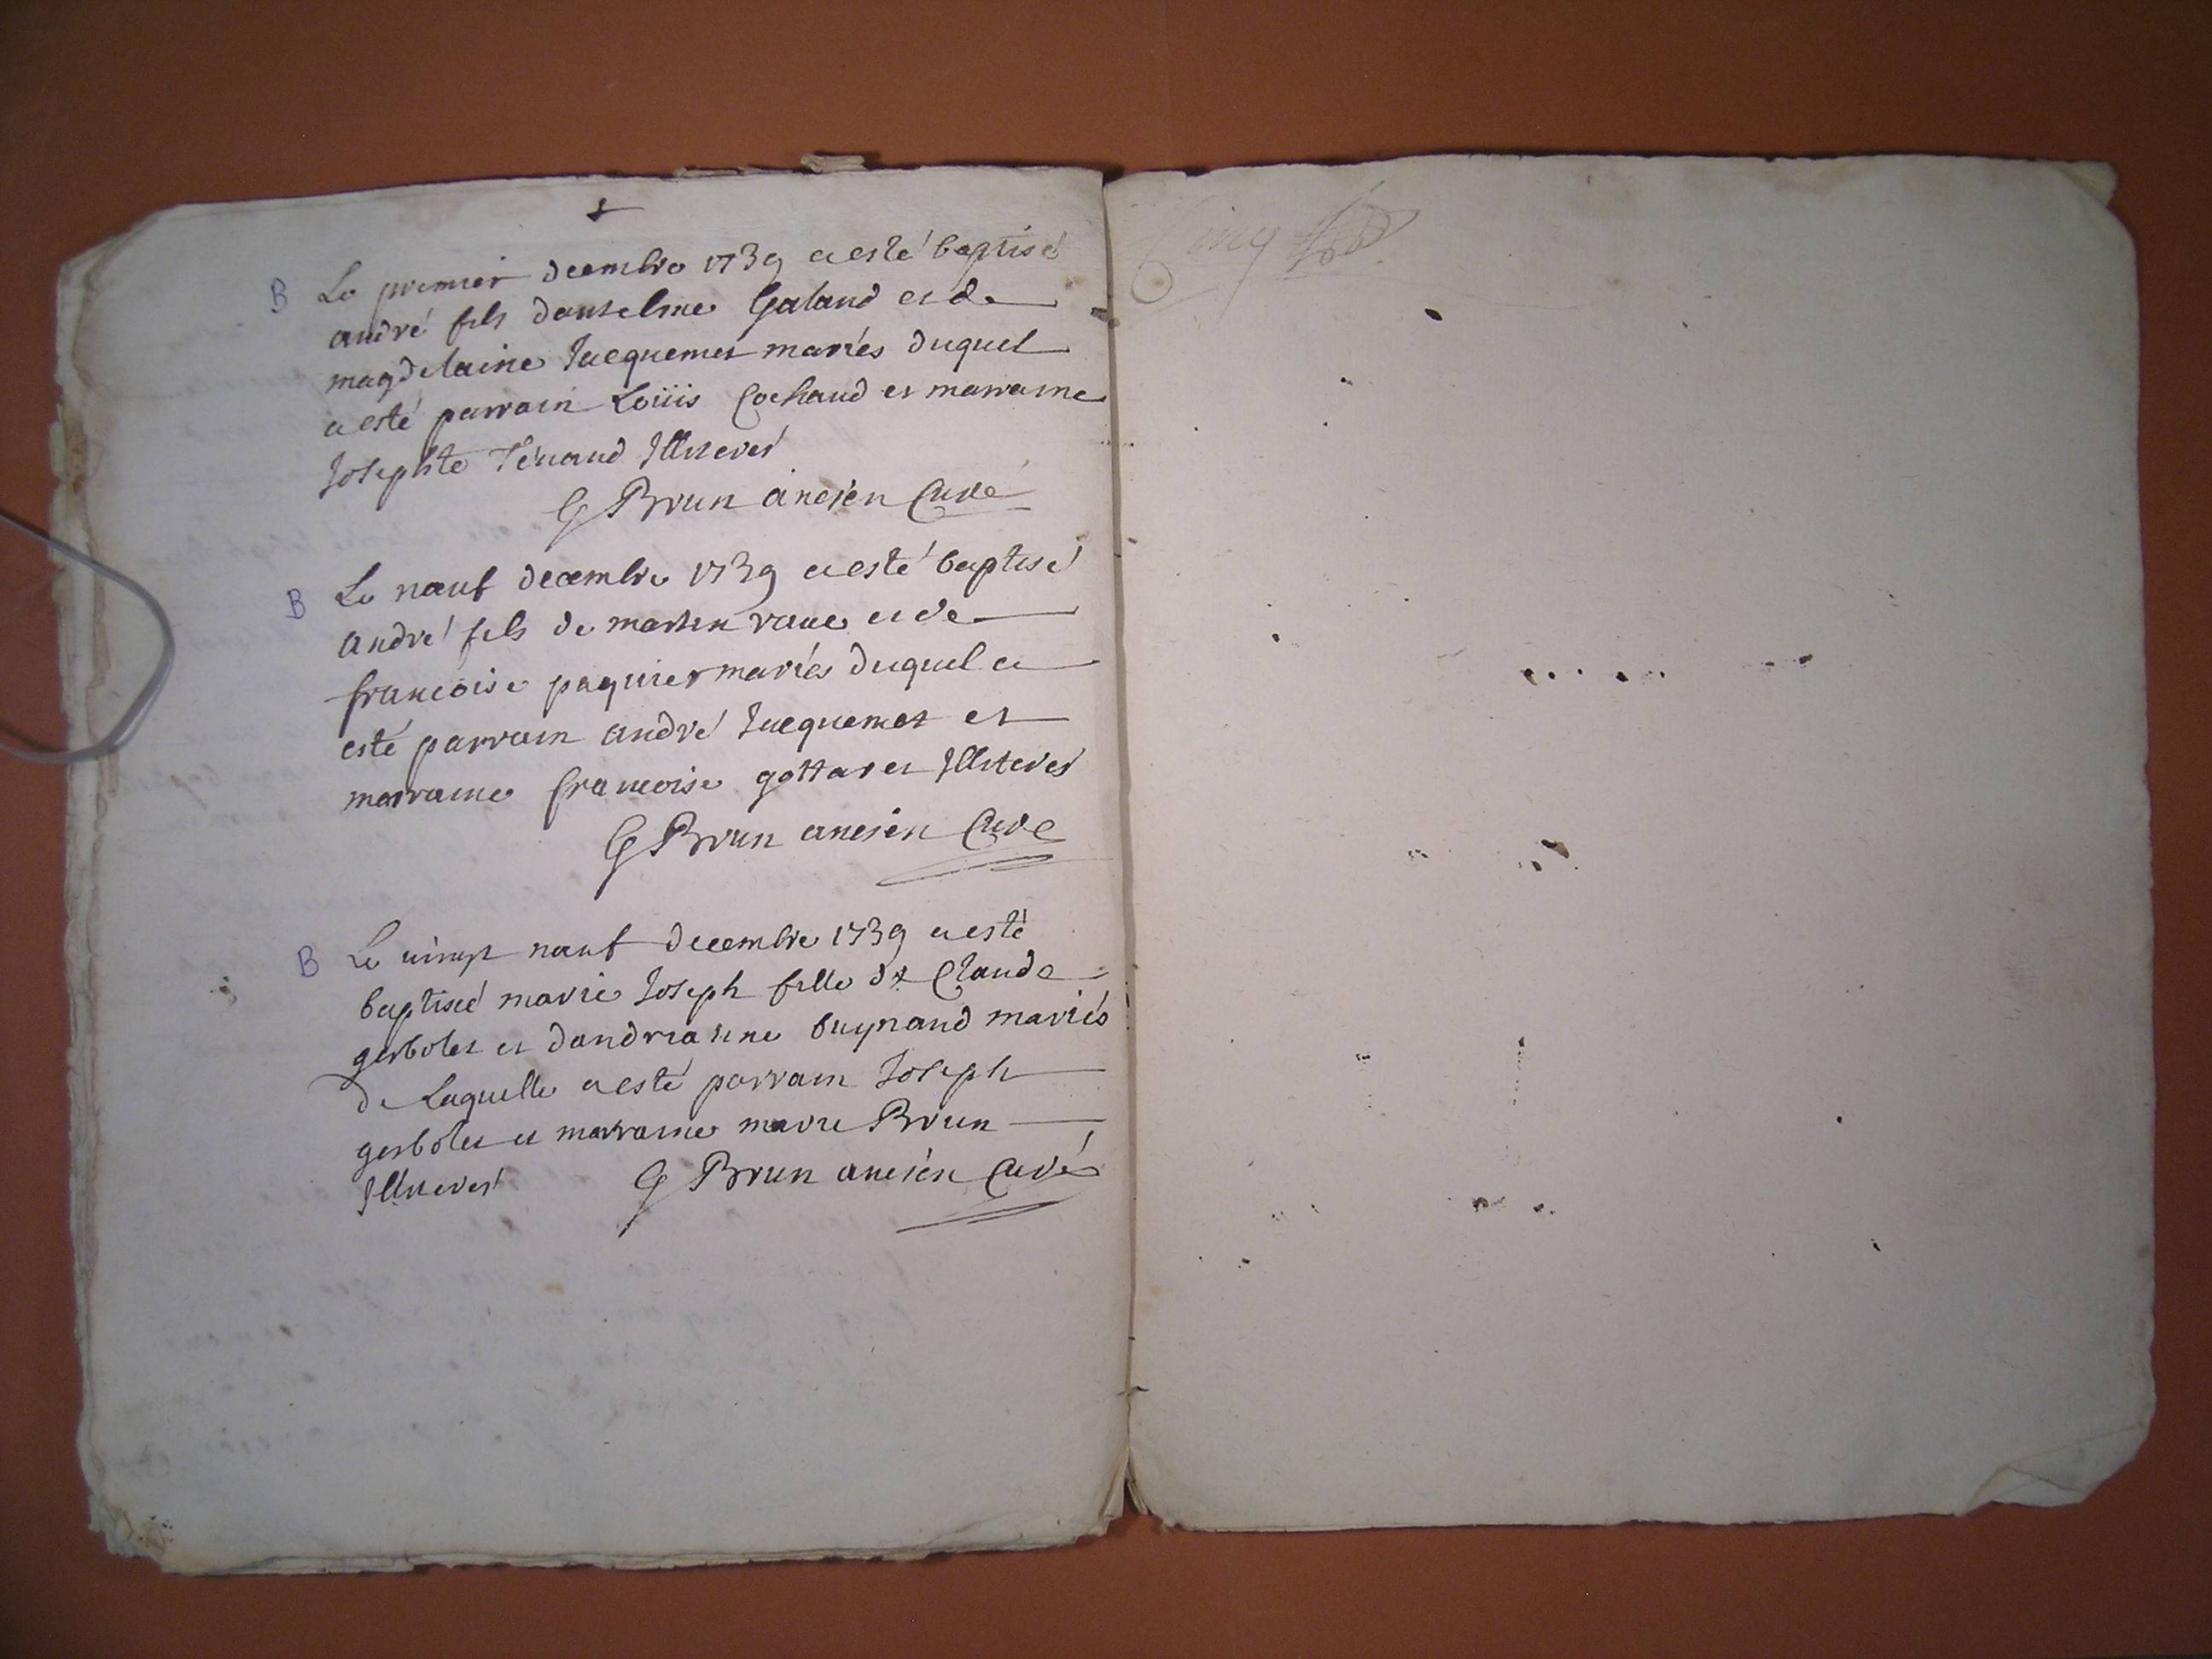 B Le premier decembre 1739 a esté baptisé
andré fils danselme Galand et de
magdelaine Jacquemet mariés duquel
a esté parrain Loüis Cochaud et marraine
Josephte Tenaud Illiterés
G Brun ancien Curé
B Le neuf decembre 1739 a esté baptisé
andré fils de martin raue et de
francoise paquier mariés duquel a
esté parrain andré Jacquemet et
marraine francoise gottaret Illiterés
G Brun ancien Curé
B Le vingt neuf decembre 1739 a esté
baptisée marie Joseph fille de Claude
gerbolet et dandrianne buynand mariés
de Laquelle a esté parrain Joseph
gerbolet et marraine marie Brun
Illiterés G Brun ancien Curé
Cinq